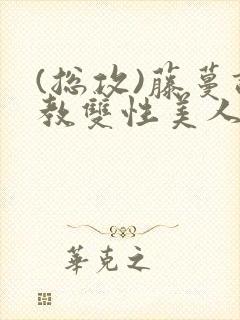 (总攻)藤蔓
教双性美人
華克之